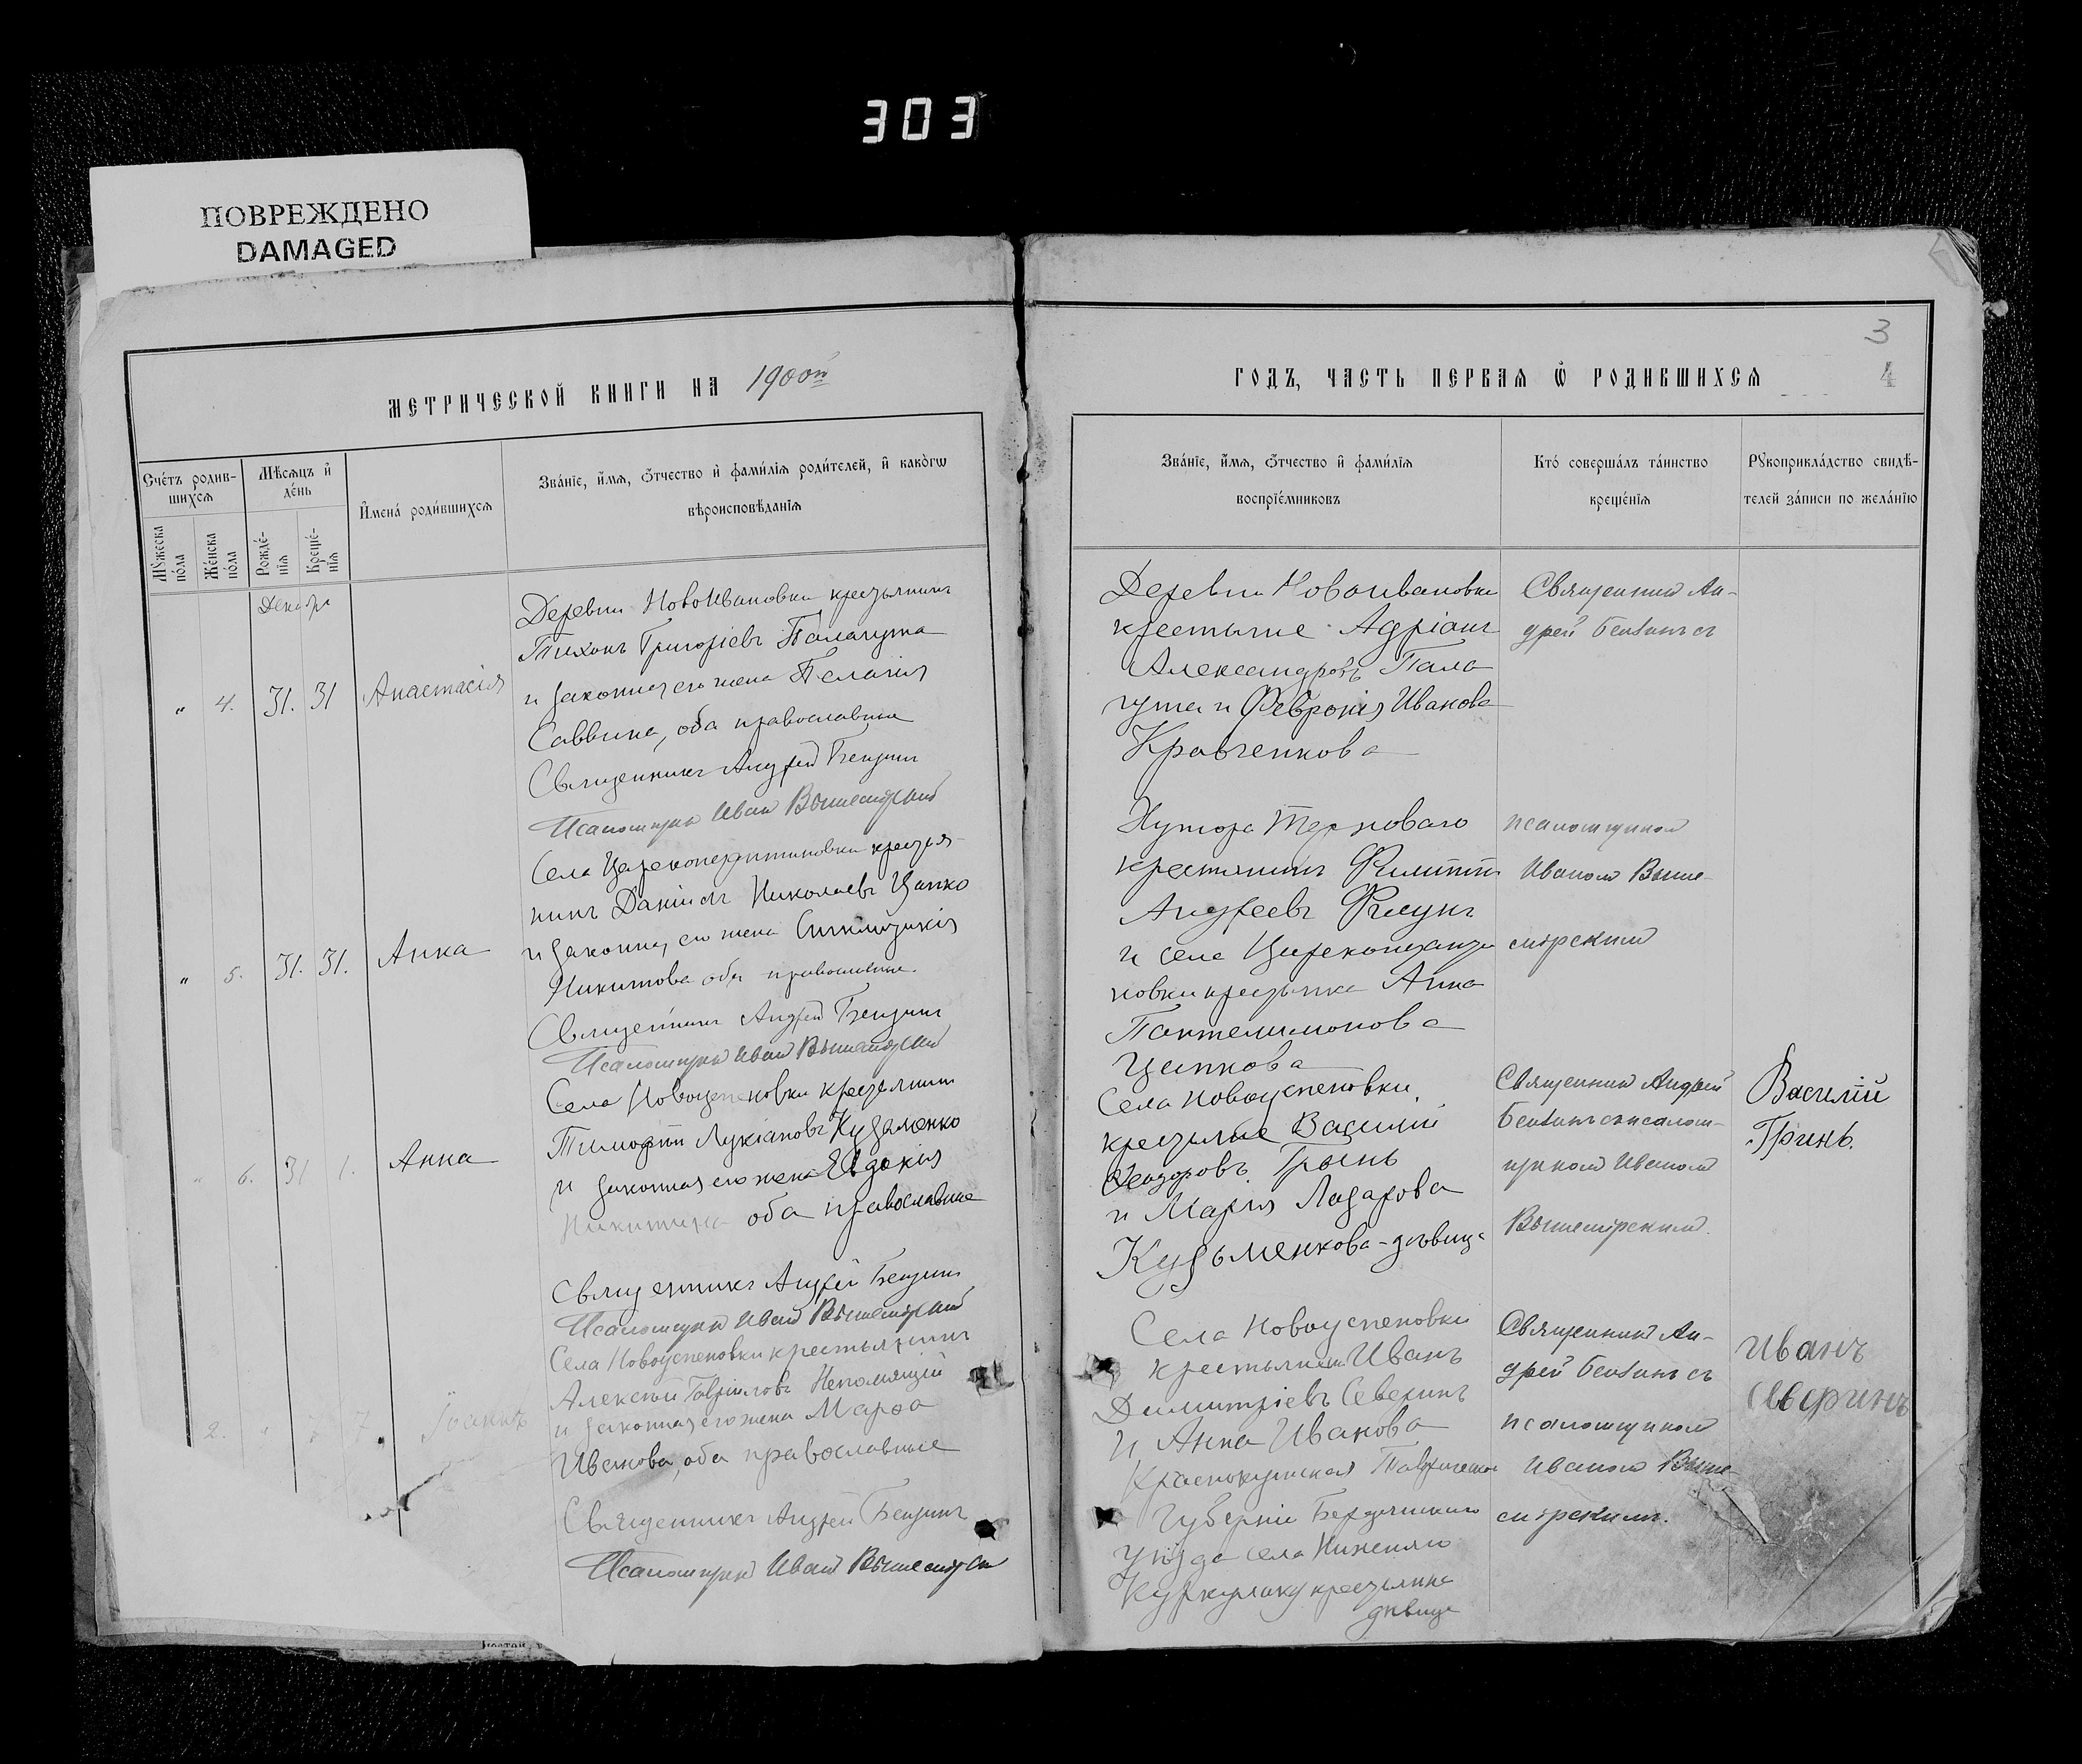 303
ПОВРЕЖДЕНО
DAMAGED
МЕТРИЧЕСКОЙ КНИГИ НА 1900й
Сче́тъ родив-
шихсѧ
Мѣсѧцъ и҆
де́нь
И҆мена́ роди́вшихсѧ
Зва́нїе, и҆́мѧ, ѻ҆́тчество и҆ фами́лїѧ роди́телей, и҆ како́гѡ
вѣроисповѣ́данїѧ
Мꙋ́жеска
по́ла
Же́нска
по́ла
Рожде́-
нїѧ
Креще́-
нїѧ
Декабря
" 4. 31. 31 Анастасія
Деревни Новоивановки крестьянинъ
Тихонъ Григоріевъ Палагута
и законная его жена Пелагія
Саввина, оба православные
Священникъ Андрей Бензинъ
Псаломщикъ Иван Вышемірскій
" 5. 31. 31. Анна
Села Цареконстантиновки крестья-
нинъ Даніилъ Николаевъ Цапко
и законная его жена
Никитова оба православные.
Священникъ Андрей Бензинъ
Псаломщикъ Иван Вышемірскій
" 6. 31 1. Анна
Села Новоуспеновки крестьянинъ
Тимофей Лукіановъ Кузьменко
и законная его жена Евдокія
Никитина оба православные
Священникъ Андрей Бензинъ
Псаломщикъ Иван Вышемірскій
2. " 7 7. Іоаннъ
Села Новоуспеновки крестьянинъ
Алексѣй Гавріиловъ Непомящій
и законная его жена Марѳа
Иванова, оба православные
Священникъ Андрей Бензинъ
Псаломщикъ Иван Вышемірскій
3
4
ГОДЪ, ЧАСТЬ ПЕРВАѦ Ѽ РОДИВШИХСѦ
Зва́нїе, и҆́мѧ, ѻ҆́тчество и҆ фами́лїѧ
воспрїе́мниковъ
Кто̀ соверша́лъ та́инство
креще́нїѧ
Рꙋкоприкла́дство свидѣ́-
телей за́писи по жела́нїю
Деревни Новоивановки
крестьяне Адріанъ
Александровъ Пала
гута и Февронія Иванова
Кравченкова
Священник Ан-
дрей Бензинъ съ
Хутора Терноваго
крестянинъ Филиппъ
Андреевъ
и села Цареконстанти
новки крестьянка Анна
Пантелимонова
Цапкова
псаломщиком
Иваном Выше-
мірским
Села Новоуспеновки
крестьяне Василій
Ѳеодоровъ Грынь
и Марія Лазарова
Кузьменкова-дѣвица
Священник Андрей
Бензинъ съ псалом-
щиком Иваном
Вышемірским.
Василій
Гринь.
Села Новоуспеновки
крестьянинъ Иванъ
Димитріевъ Северинъ
и Анна Иванова
Краснокутская Таврической
Губерніи Бердянскаго
уѣзда села Нижняго
Куркулаку крестьянка
дѣвица
Священник Ан-
дрей Бензинъ съ
псаломщиком
Иваном Выше-
мірскимъ.
Иванъ
Сѣверинъ